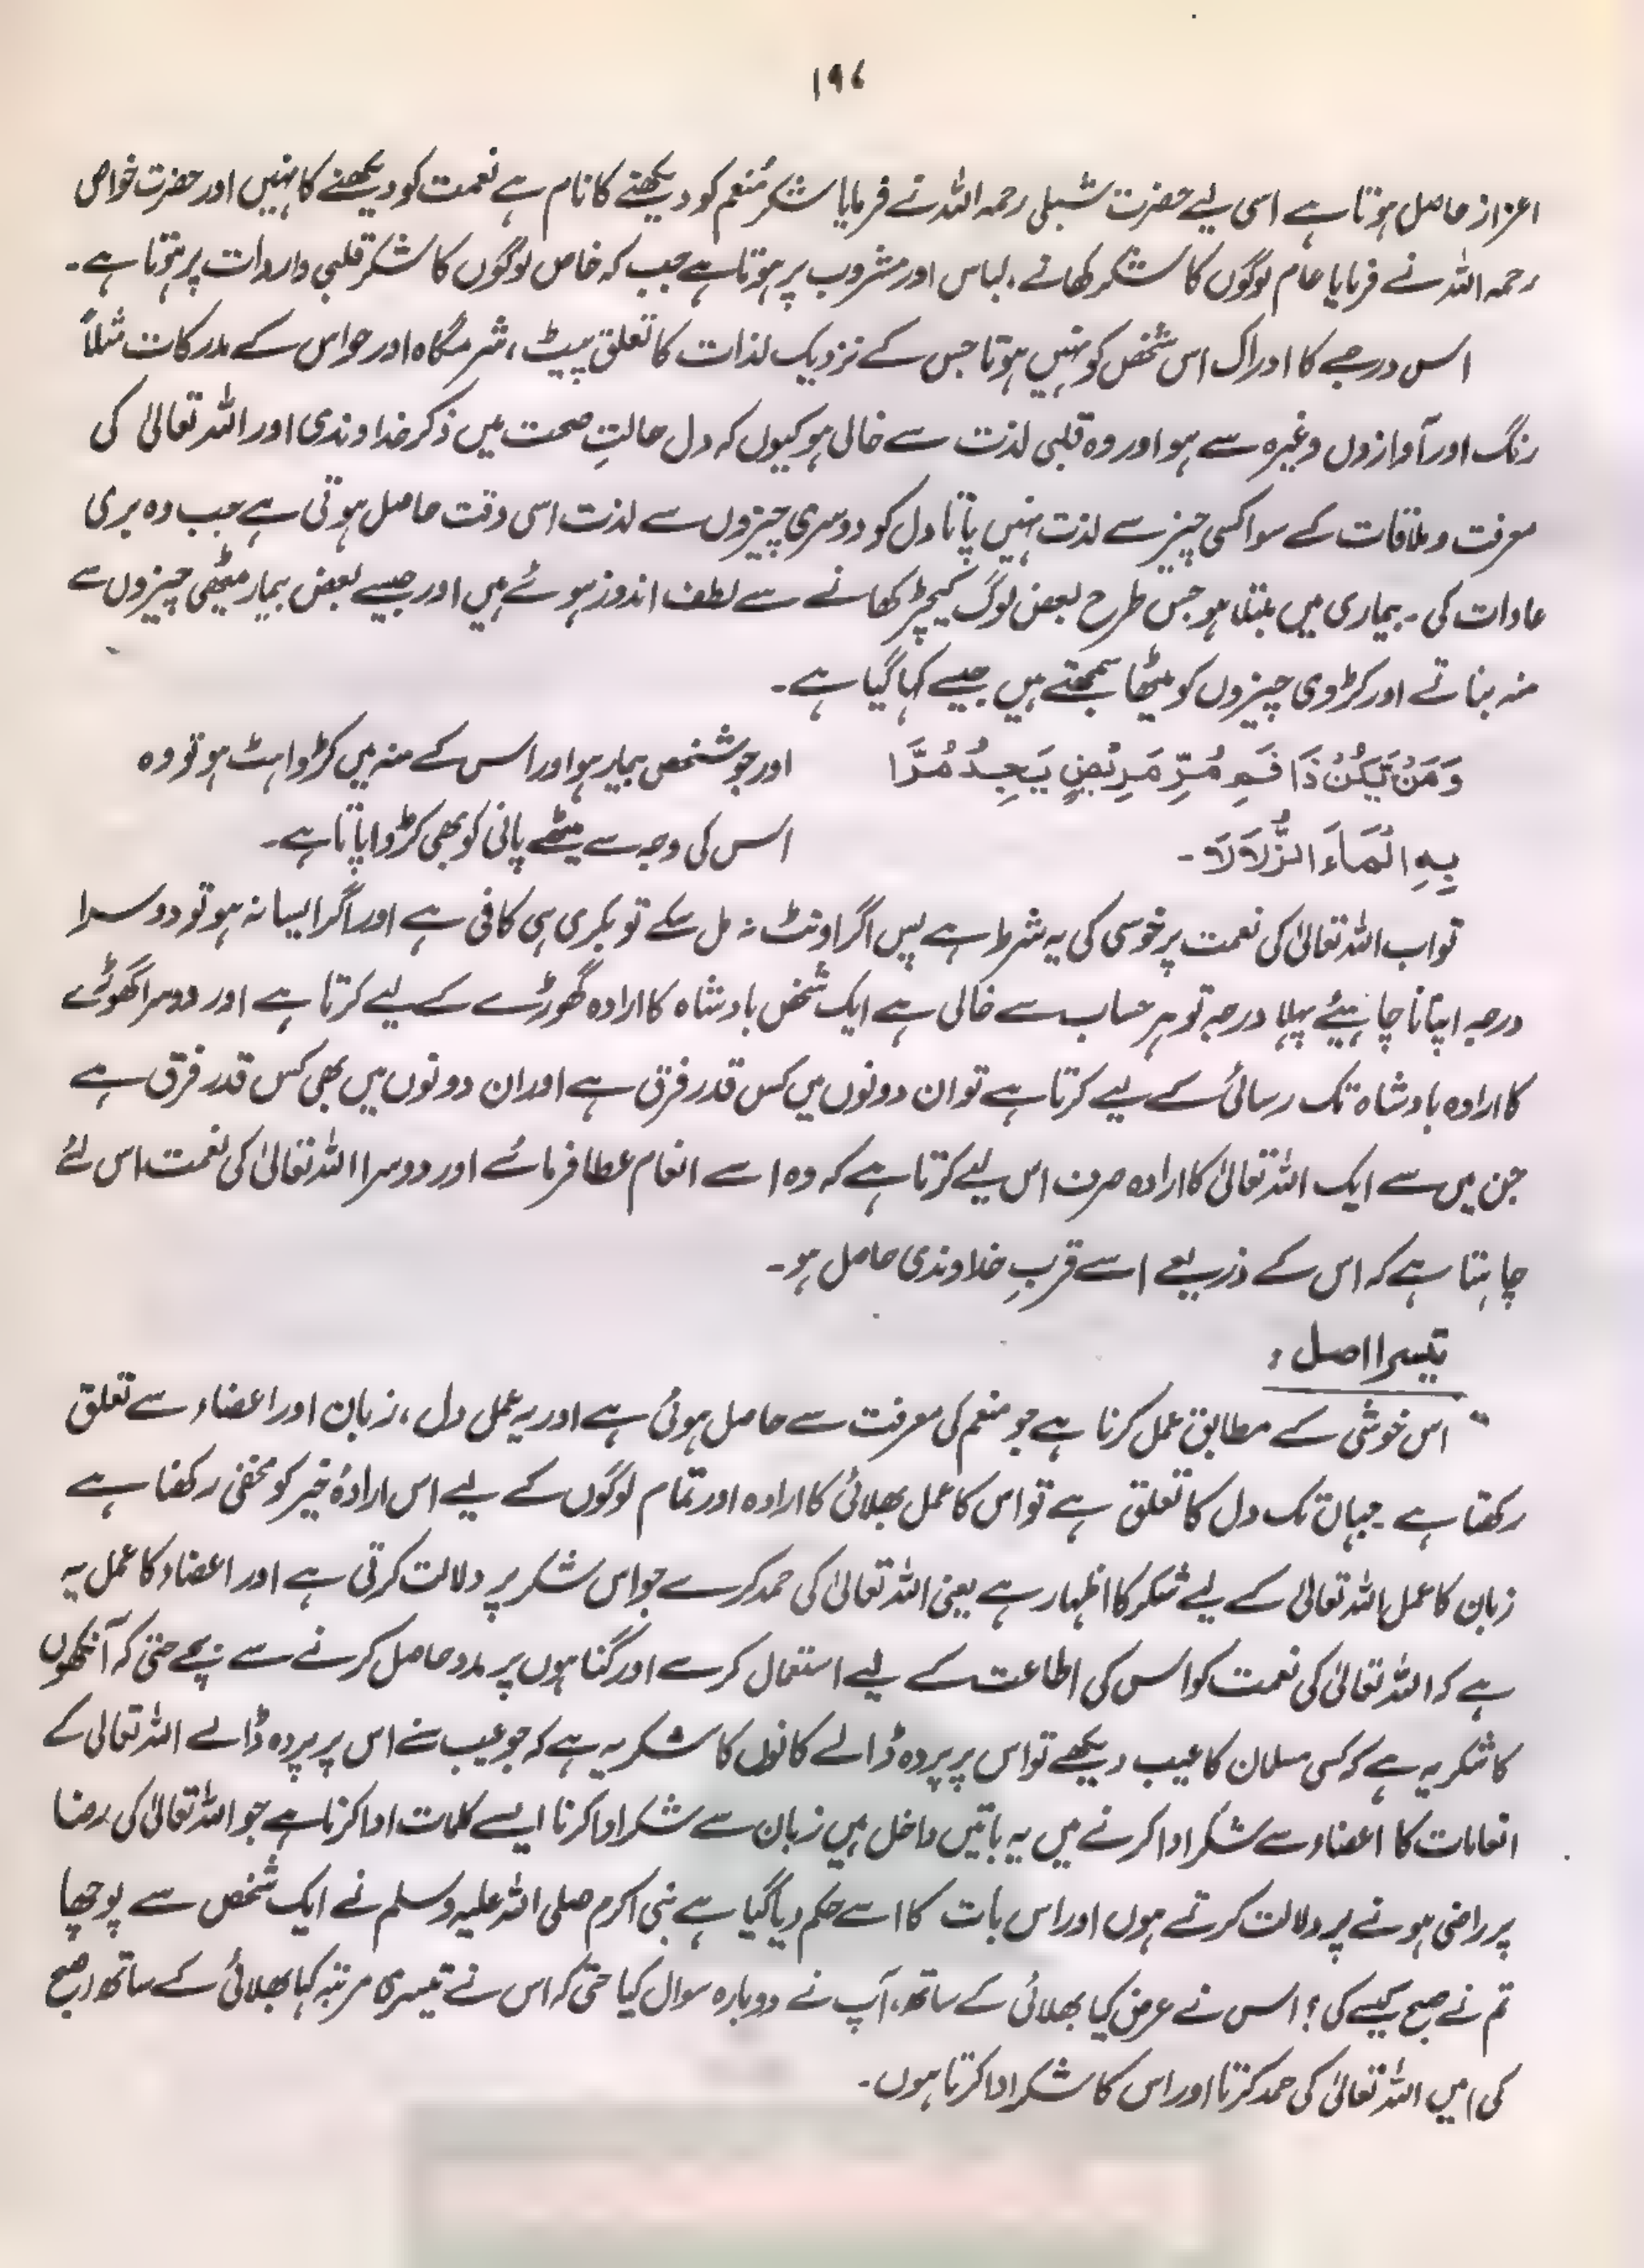 ۱۹۷
اعزاز حاصل ہوتا ہے اسی لیے حضرت شبلی رحمہ اللہ نے فرمایا شکر مُنعم کو دیکھنے کا نام ہے نعمت کو دیکھنے کا نہیں اور حضرت خواص
رحمہ اللہ نے فرمایا عام لوگوں کا شکر کھانے، لباس اور مشروب پر ہوتا ہے جب کہ خاص لوگوں کا شکر قلبی واردات پر ہوتا ہے۔
اس درجے کا ادراک اس شخص کو نہیں ہوتا جس کے نزدیک لذات کا تعلق پیٹ، شرمگاہ اور حواس کے مدرکات مثلاً
رنگ اور آوازوں وغیرہ سے ہو اور وہ قلبی لذت سے خالی ہو کیوں کہ دل حالتِ صحت میں ذکر خداوندی اور اللہ تعالیٰ کی
معرفت و ملاقات کے سوا کسی چیز سے لذت نہیں پاتا دل کو دوسری چیزوں سے لذت اسی وقت حاصل ہوتی ہے جب وہ بری
عادات کی۔ بیماری میں مبتلا ہو جس طرح بعض لوگ کیچڑ کھانے سے لطف اندوز ہوئے ہیں اور جیسے بعض بیمار میٹھی چیزوں سے
منہ بناتے اور کڑوی چیزوں کو میٹھا سمجھتے ہیں جیسے کہا گیا ہے۔
وَمَنْ يَّكُنْ ذَا فَمِ مُرِّ مَرِيْضٍ يَجِدُ مُرًّا
بِهِ الْمَاءَ الزُّلَالَا۔
اور جو شخص بیمار ہو اور اس کے منہ میں کڑواہٹ ہو تو وہ
اس کی وجہ سے میٹھے پانی کو بھی کڑوا پاتا ہے۔
تو اب اللہ تعالیٰ کی نعمت پر خوسی کی یہ شرط ہے پس اگر اونٹ نہ مل سکے تو بکری ہی کافی ہے اور اگر ایسا نہ ہو تو دوسرا
درجہ اپنانا چاہیئے پہلا درجہ تو ہر حساب سے خالی ہے ایک شخص بادشاہ کا ارادہ گھوڑے کے لیے کرتا ہے اور دوسرا گھوڑے
کا ارادہ بادشاہ تک رسائی کے لیے کرتا ہے تو ان دونوں میں کس قدر فرق ہے اور ان دونوں میں بھی کس قدر فرق ہے
جن میں سے ایک اللہ تعالیٰ کا ارادہ صرف اس لیے کرتا ہے کہ وہ اسے انعام عطا فرمائے اور دوسرا اللہ تعالیٰ کی نعمت اس لئے
چاہتا ہے کہ اس کے ذریعے اسے قربِ خداوندی حاصل ہو۔
تیسرا اصل :
اس خوشی کے مطابق عمل کرنا ہے جو منعم کی معرفت سے حاصل ہوئی ہے اور یہ عمل دل، زبان اور اعضاء سے تعلق
رکھتا ہے جہاں تک دل کا تعلق ہے تو اس کا عمل بھلائی کا ارادہ اور تمام لوگوں کے لیے اس ارادۂ خیر کو مخفی رکھنا ہے
زبان کا عمل اللہ تعالیٰ کے لیے شکر کا اظہار ہے یعنی اللہ تعالیٰ کی حمد کرے جو اس شکر پر دلالت کرتی ہے اور اعضاء کا عمل یہ
ہے کہ اللہ تعالیٰ کی نعمت کو اس کی اطاعت کے لیے استعمال کرے اور گناہوں پر مدد حاصل کرنے سے بچے حتیٰ کہ آنکھوں
کا شکر یہ ہے کہ کسی مسلمان کا عیب دیکھے تو اس پر پردہ ڈالے کانوں کا شکر یہ ہے کہ جو عیب سنے اس پر پردہ ڈالے اللہ تعالیٰ کے
انعامات کا اعضاء سے شکر ادا کرنے میں یہ باتیں داخل ہیں زبان سے شکر ادا کرنا ایسے کلمات ادا کرنا ہے جو اللہ تعالیٰ کی رضا
پر راضی ہونے پر دلالت کرتے ہوں اور اس بات کا اسے حکم دیا گیا ہے نبی اکرم صلی اللہ علیہ وسلم نے ایک شخص سے پوچھا
تم نے صبح کیسے کی؟ اس نے عرض کیا بھلائی کے ساتھ، آپ نے دوبارہ سوال کیا حتیٰ کہ اس نے تیسری مرتبہ کہا بھلائی کے ساتھ (صبح
کی) میں اللہ تعالیٰ کی حمد کرتا اور اس کا شکر ادا کرتا ہوں۔